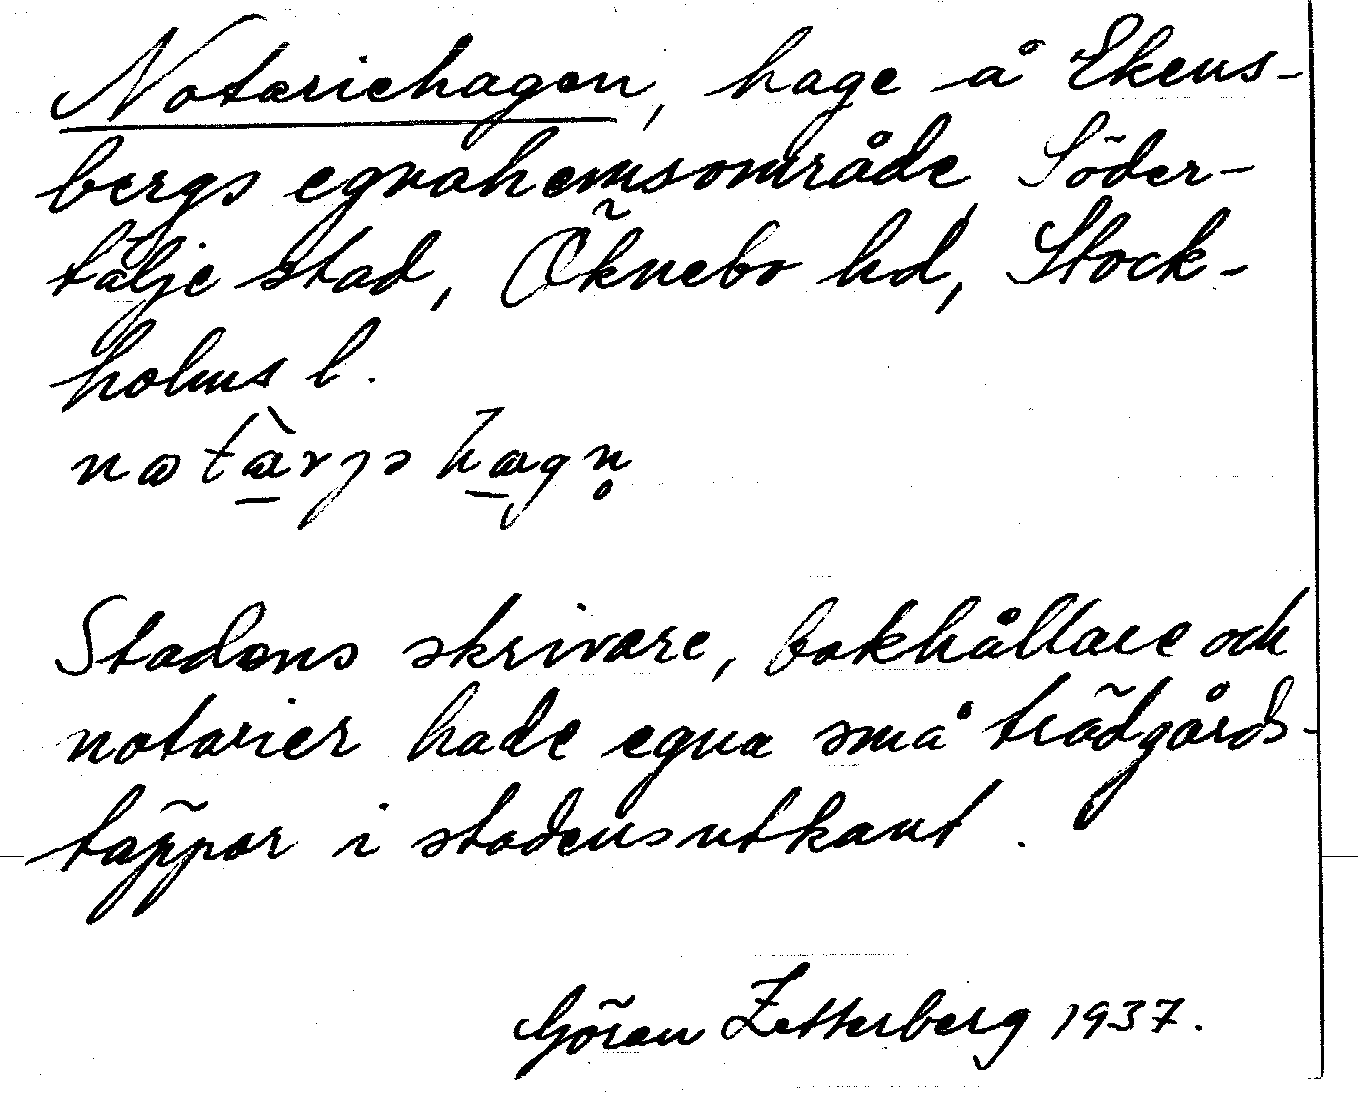 Notariehagen, hage å Ekens-
bergs egnahemsområde, Söder-
tälje stad, Öknebo hd, Stock-
holms l.
Stadens skrivare, bokhållare och
notarier hade egna små trädgårds-
täppor i stadens utkant.
Göran Zetterberg 1937.